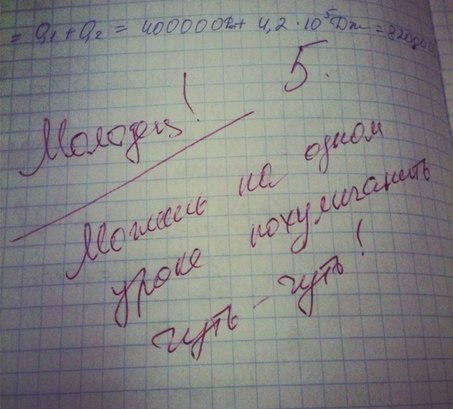 = Q₁ + Q₂ = 400000Дж + 4,2 · 10⁵ Дж = 82000
5.
Молодец!
Можешь на одном
уроке похулиганить
чуть-чуть!